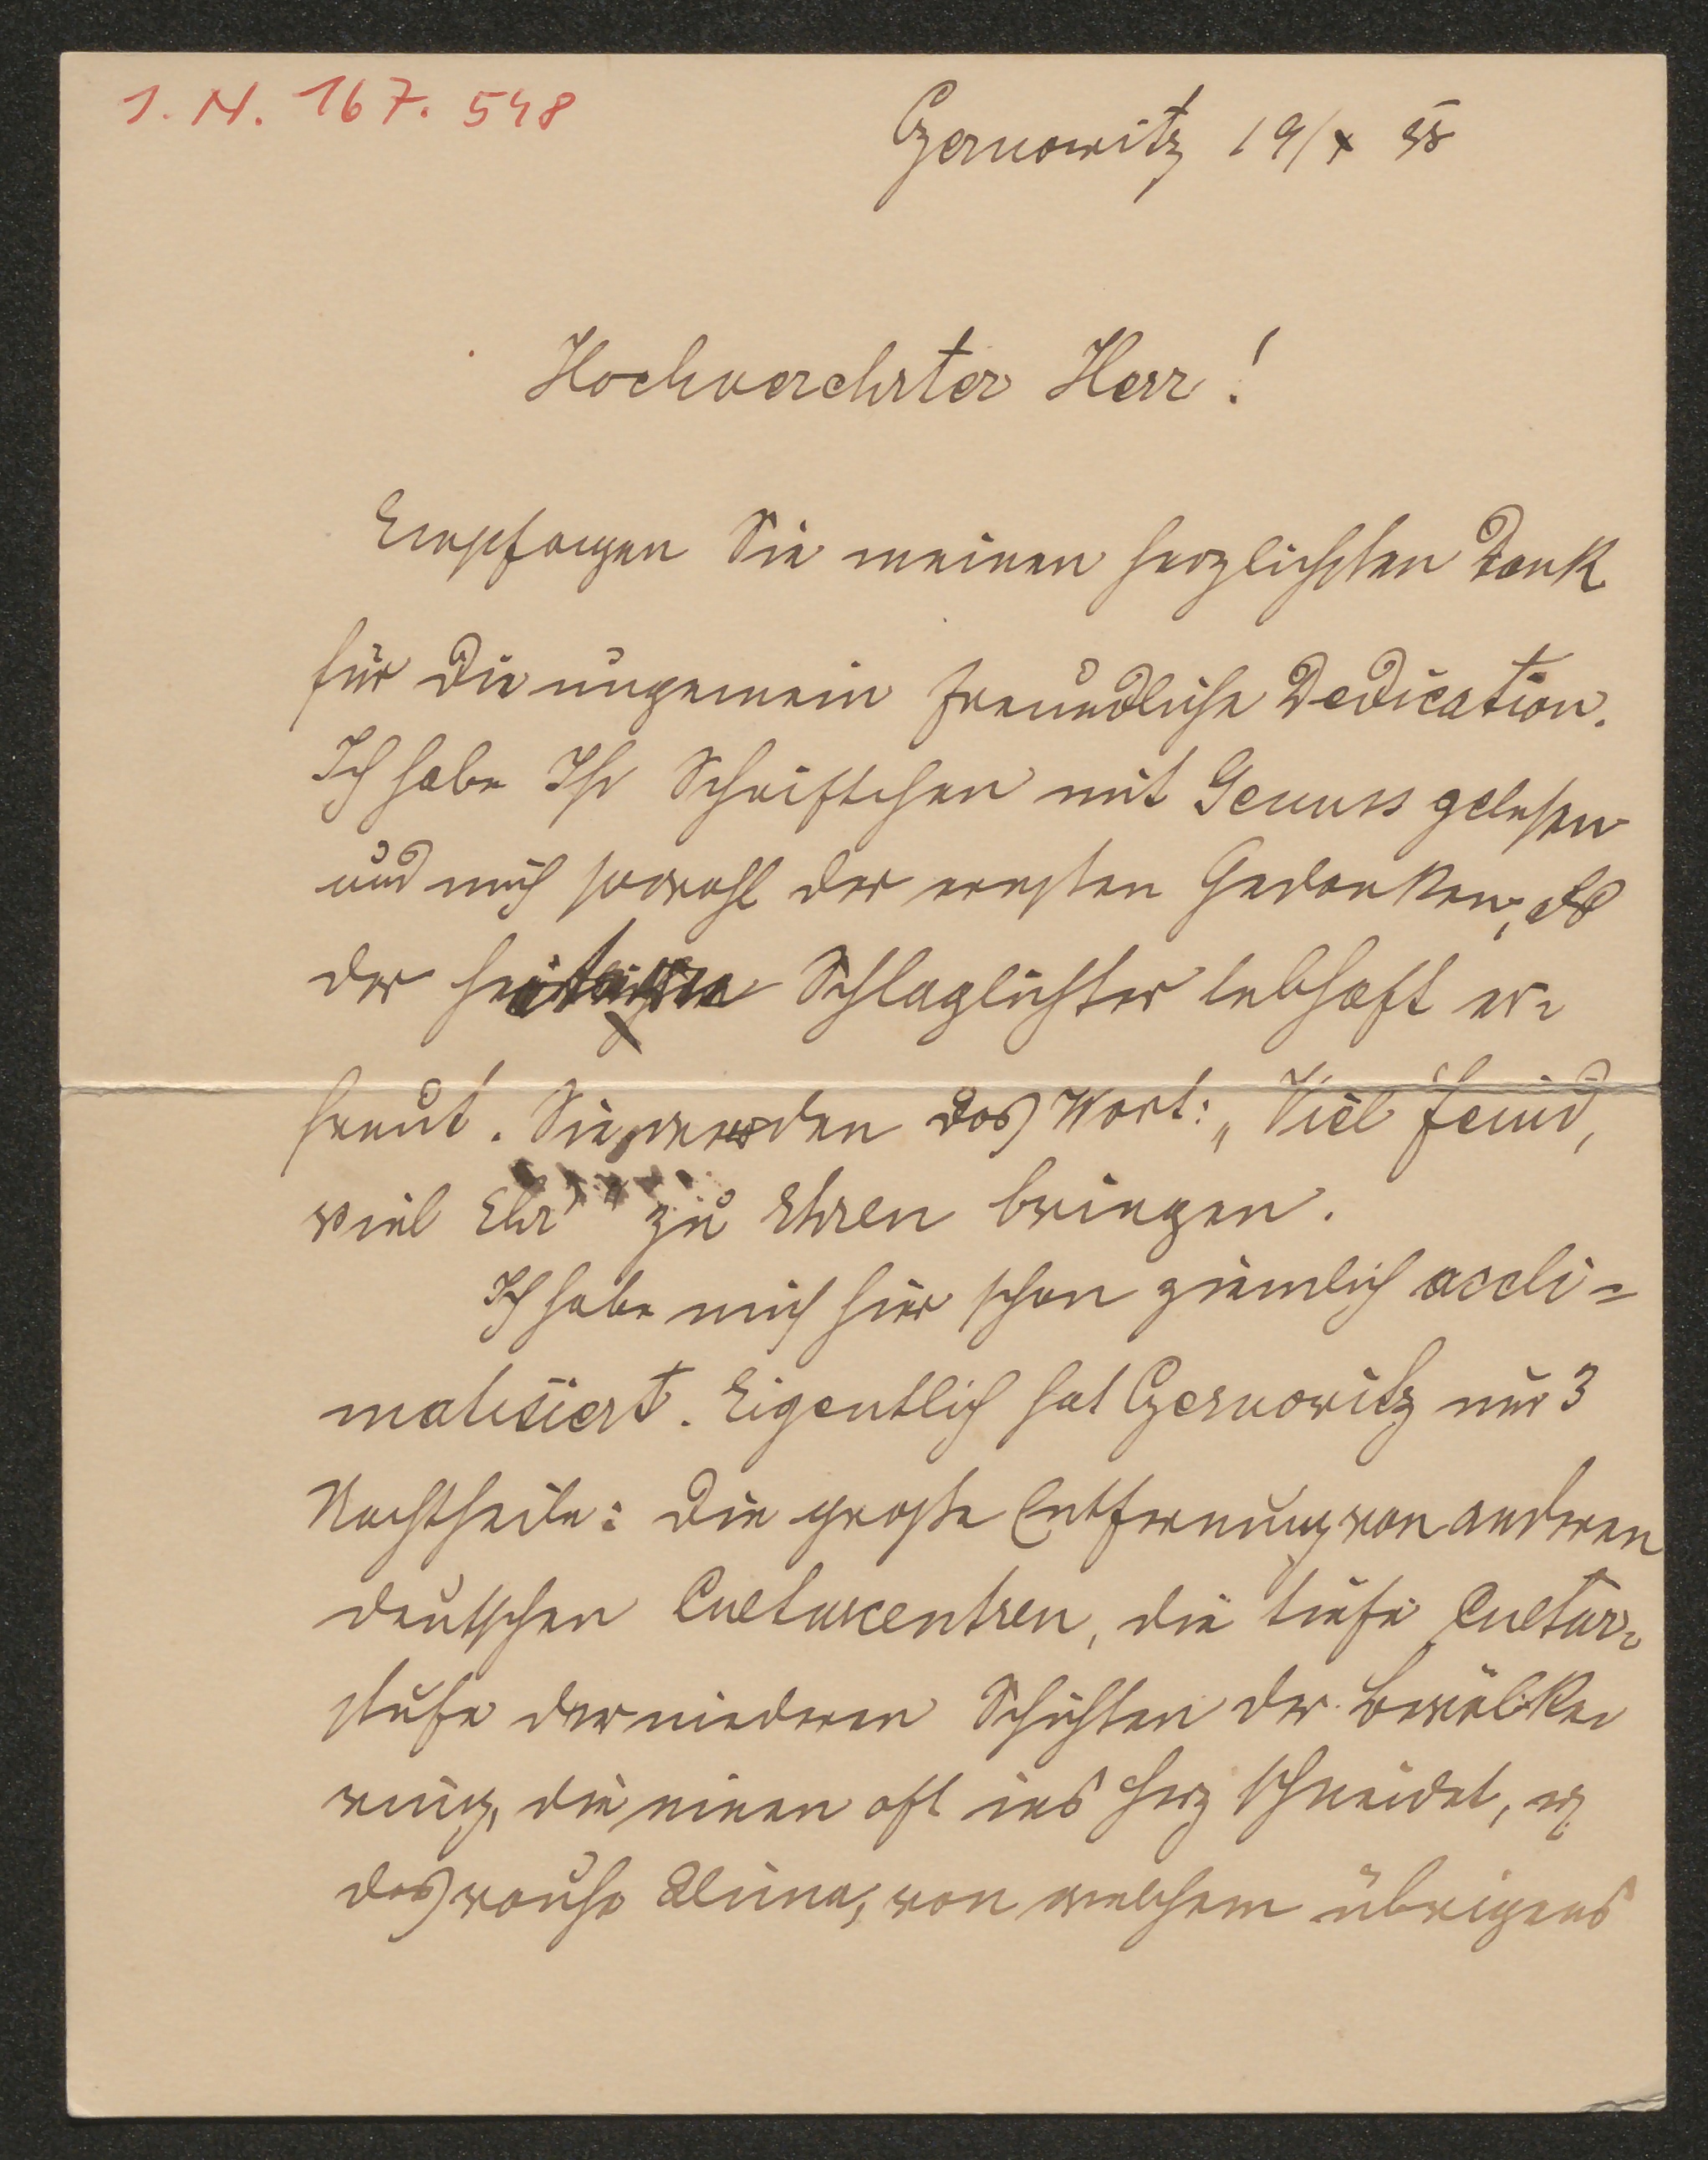 I. N. 167.548
Czernowitz 19/X
Hochverehrter Herr!
Empfangen Sie meinen herzlichsten Dank
für die ungemein freundliche Dedication.
Ich habe Ihr Schriftchen mit Genuss gelesen
und mich sowohl der ernsten Gedanken, als
der Schlaglichter lebhaft er=
freut. Sie werden das Wort: „Viel Feind,
viel Ehr'" zu Ehren bringen.
Ich habe mich hier schon ziemlich accli=
matisiert. Eigentlich hat Czernowitz nur 3
Nachtheile: die große Entfernung von anderen
deutschen Culturcentren, die tiefe Cultur=
stufe der niederen Schichten der Bevölke
rung, die einen oft ins Herz schneidet,
das rauhe Clima, von welchem übrigens